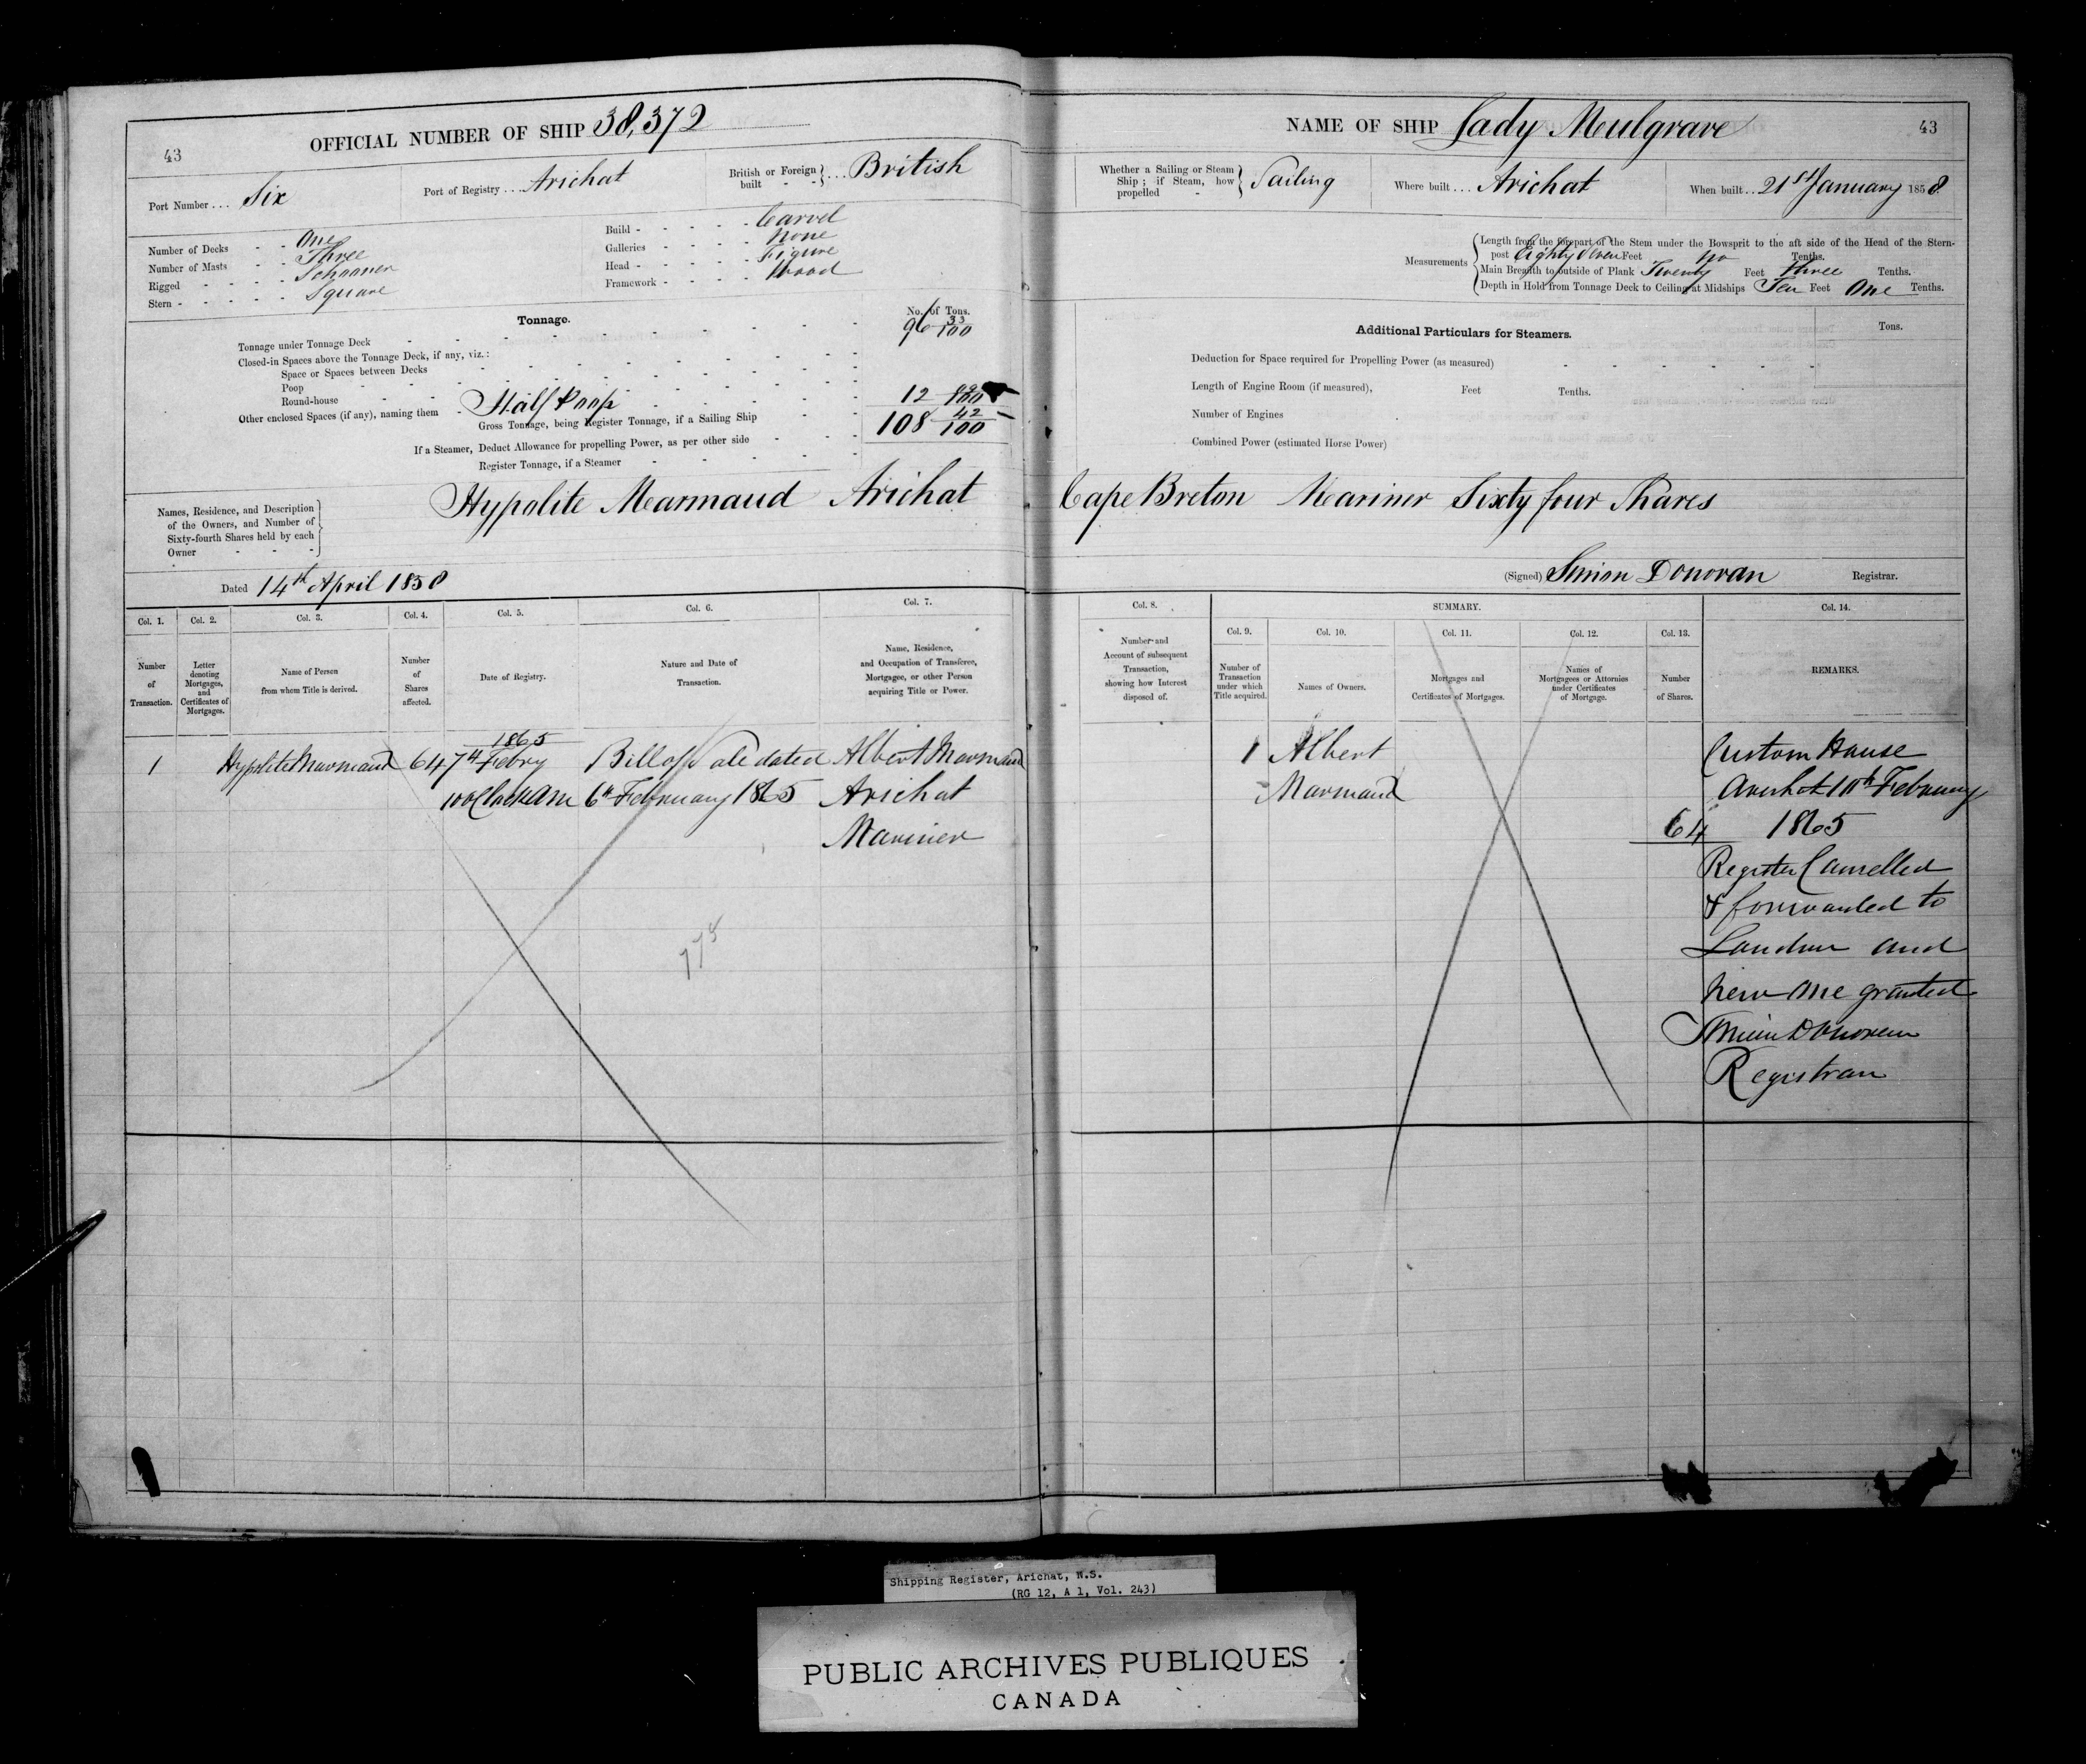 OFFICIAL NUMBER OF SHIP 38,372
43
Port Number ... Six
Port of Registry ... Arichat
British or Foreign built - - } ... British
Number of Decks - - One
Number of Masts - - Three
Rigged - - - - Schooner
Stern - - - - - Square
Build - - - - - Carvel
Galleries - - - - None
Head - - - - - Figure
Framework - - - - Wood
Tonnage.
No. of Tons.
Tonnage under Tonnage Deck 96 33/100
Closed-in Spaces above the Tonnage Deck, if any, viz.:
Space or Spaces between Decks
Poop
Round-house
Other enclosed Spaces (if any), naming them - Half Poop 12 09/100
Gross Tonnage, being Register Tonnage, if a Sailing Ship 108 42/100
If a Steamer, Deduct Allowance for propelling Power, as per other side
Register Tonnage, if a Steamer
Names, Residence, and Description
of the Owners, and Number of
Sixty-fourth Shares held by each
Owner
Hypolite Marmaud Arichat
Dated 14th April 1858
Col. 1. Col. 2. Col. 3. Col. 4. Col. 5. Col. 6. Col. 7.
Number of Transaction.
Letter denoting Mortgages, and Certificates of Mortgages.
Name of Person from whom Title is derived.
Number of Shares affected.
Date of Registry.
Nature and Date of Transaction.
Name, Residence, and Occupation of Transferee, Mortgagee, or other Person acquiring Title or Power.
1865
1 Hypolite Marmaud 64 7th Febry Bill of Sale dated Albert Marmaud
10 oClock am 6th February 1865 Arichat
Mariner
775
NAME OF SHIP Lady Mulgrave
43
Whether a Sailing or Steam Ship; if Steam, how propelled - } Sailing
Where built ... Arichat
When built .. 21st January 1858
Measurements
Length from the forepart of the Stem under the Bowsprit to the aft side of the Head of the Stern-
post Eighty Seven Feet No Tenths.
Main Breadth to outside of Plank Twenty Feet three Tenths.
Depth in Hold from Tonnage Deck to Ceiling at Midships Ten Feet One Tenths.
Additional Particulars for Steamers.
Tons.
Deduction for Space required for Propelling Power (as measured)
Length of Engine Room (if measured), Feet Tenths.
Number of Engines
Combined Power (estimated Horse Power)
Cape Breton Mariner Sixty four Shares
(Signed) Simon Donovan Registrar.
Col. 8. SUMMARY. Col. 14.
Col. 9. Col. 10. Col. 11. Col. 12. Col. 13.
Number and Account of subsequent Transaction, showing how Interest disposed of.
Number of Transaction under which Title acquired.
Names of Owners.
Mortgages and Certificates of Mortgages.
Names of Mortgagees or Attornies under Certificates of Mortgage.
Number of Shares.
REMARKS.
1 Albert
Marmaud
64
Custom House
Arichat 10th February
1865
Register Cancelled
& forwarded to
London and
New One granted
Simon Donovan
Registrar
Shipping Register, Arichat, N.S.
(RG 12, A 1, Vol. 243)
PUBLIC ARCHIVES PUBLIQUES
CANADA